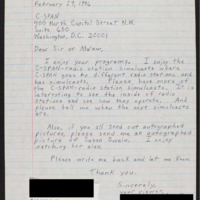 February 27, 1996
C-SPAN
400 North Capitol Street N.W.
Suite 650
Washington, D.C. 20001
Dear Sir or Ma'am,
I enjoy your programs. I enjoy the
C-SPAN-radio station simulcasts where
C-SPAN goes to different radio stations and
has simulcasts. Please have more of
the C-SPAN-radio station simulcasts. It is
interesting to see the inside of radio
stations and see how they operate. And
please tell me when the next simulcasts
are.
Also, if you all send out autographed
pictures, please send me an autographed
picture of Susan Swain. I enjoy
watching her also.
Please write me back and let me know.
Thank you.
Sincerely,
your viewer,